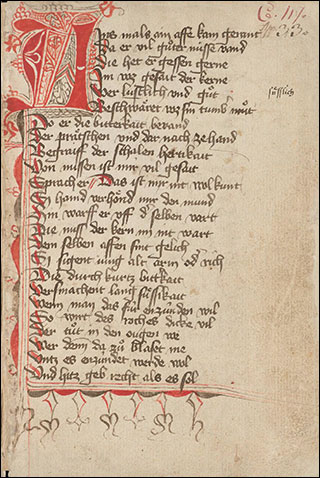 Ains mals ain affe kam gerant
Da er vil gůter nusse vand
Die het er gessen gerne
Im wz gesait der kerne
Wer lustlich und gůt
Beschwäret wz sin tumb můt
Do er die bitterkait bevand
Der prutschen und dar nach ze hand
Begraiff der schalen hertikait
Von nussen ist mir vil gesait
Sprach er Das ist mir nit wol kunt
Sy haind verhönd mir den mund
Hin warff er uff d selben vart
Die nuss der kern im nit wart
Dem selben affen sint gelich
Sy sigent iung alt arm od rich
Die durch kurtz bitterkait
Versmachent lang süssikait
Wenn man das für enzünden wil
So wirt des roches dicke vil
Der tůt in den ougen we
Wer dem da zů blaset me
Untz es enzündet werde wol
Und hitz geb recht als es sol